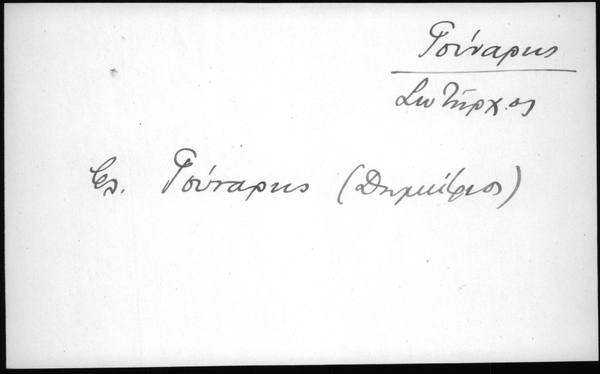 Γούναρης
Σωτήρχος
Ἐν. Γούναρης (Δημήτριος)